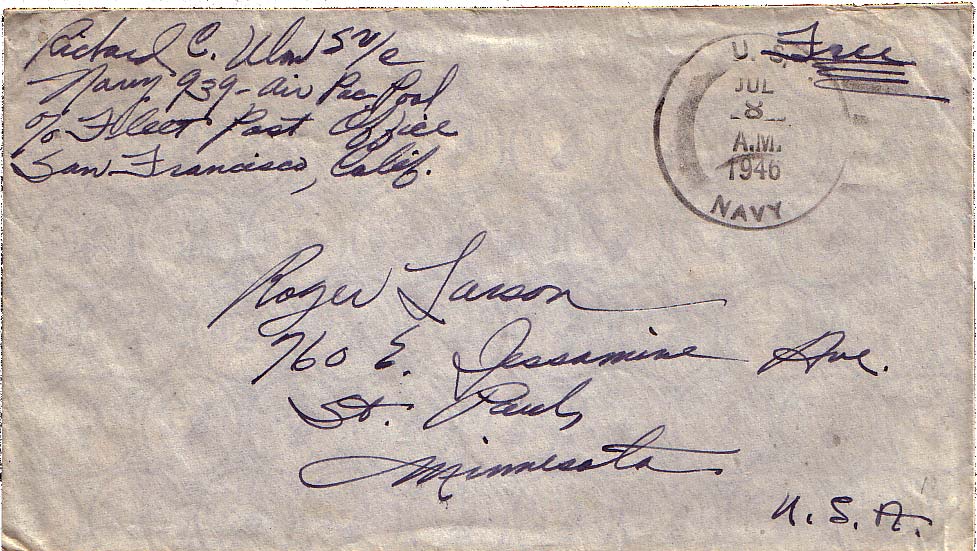 Richard C. Ulm S 1/c
Navy 939 - Air Pac Pool
c/o Fleet Post Office
San Francisco, Calif.
Free
U. S.
JUL
8
A.M.
1946
NAVY
Roger Larson
760 E. Jessamine Ave.
St. Paul,
Minnesota
U. S. A.